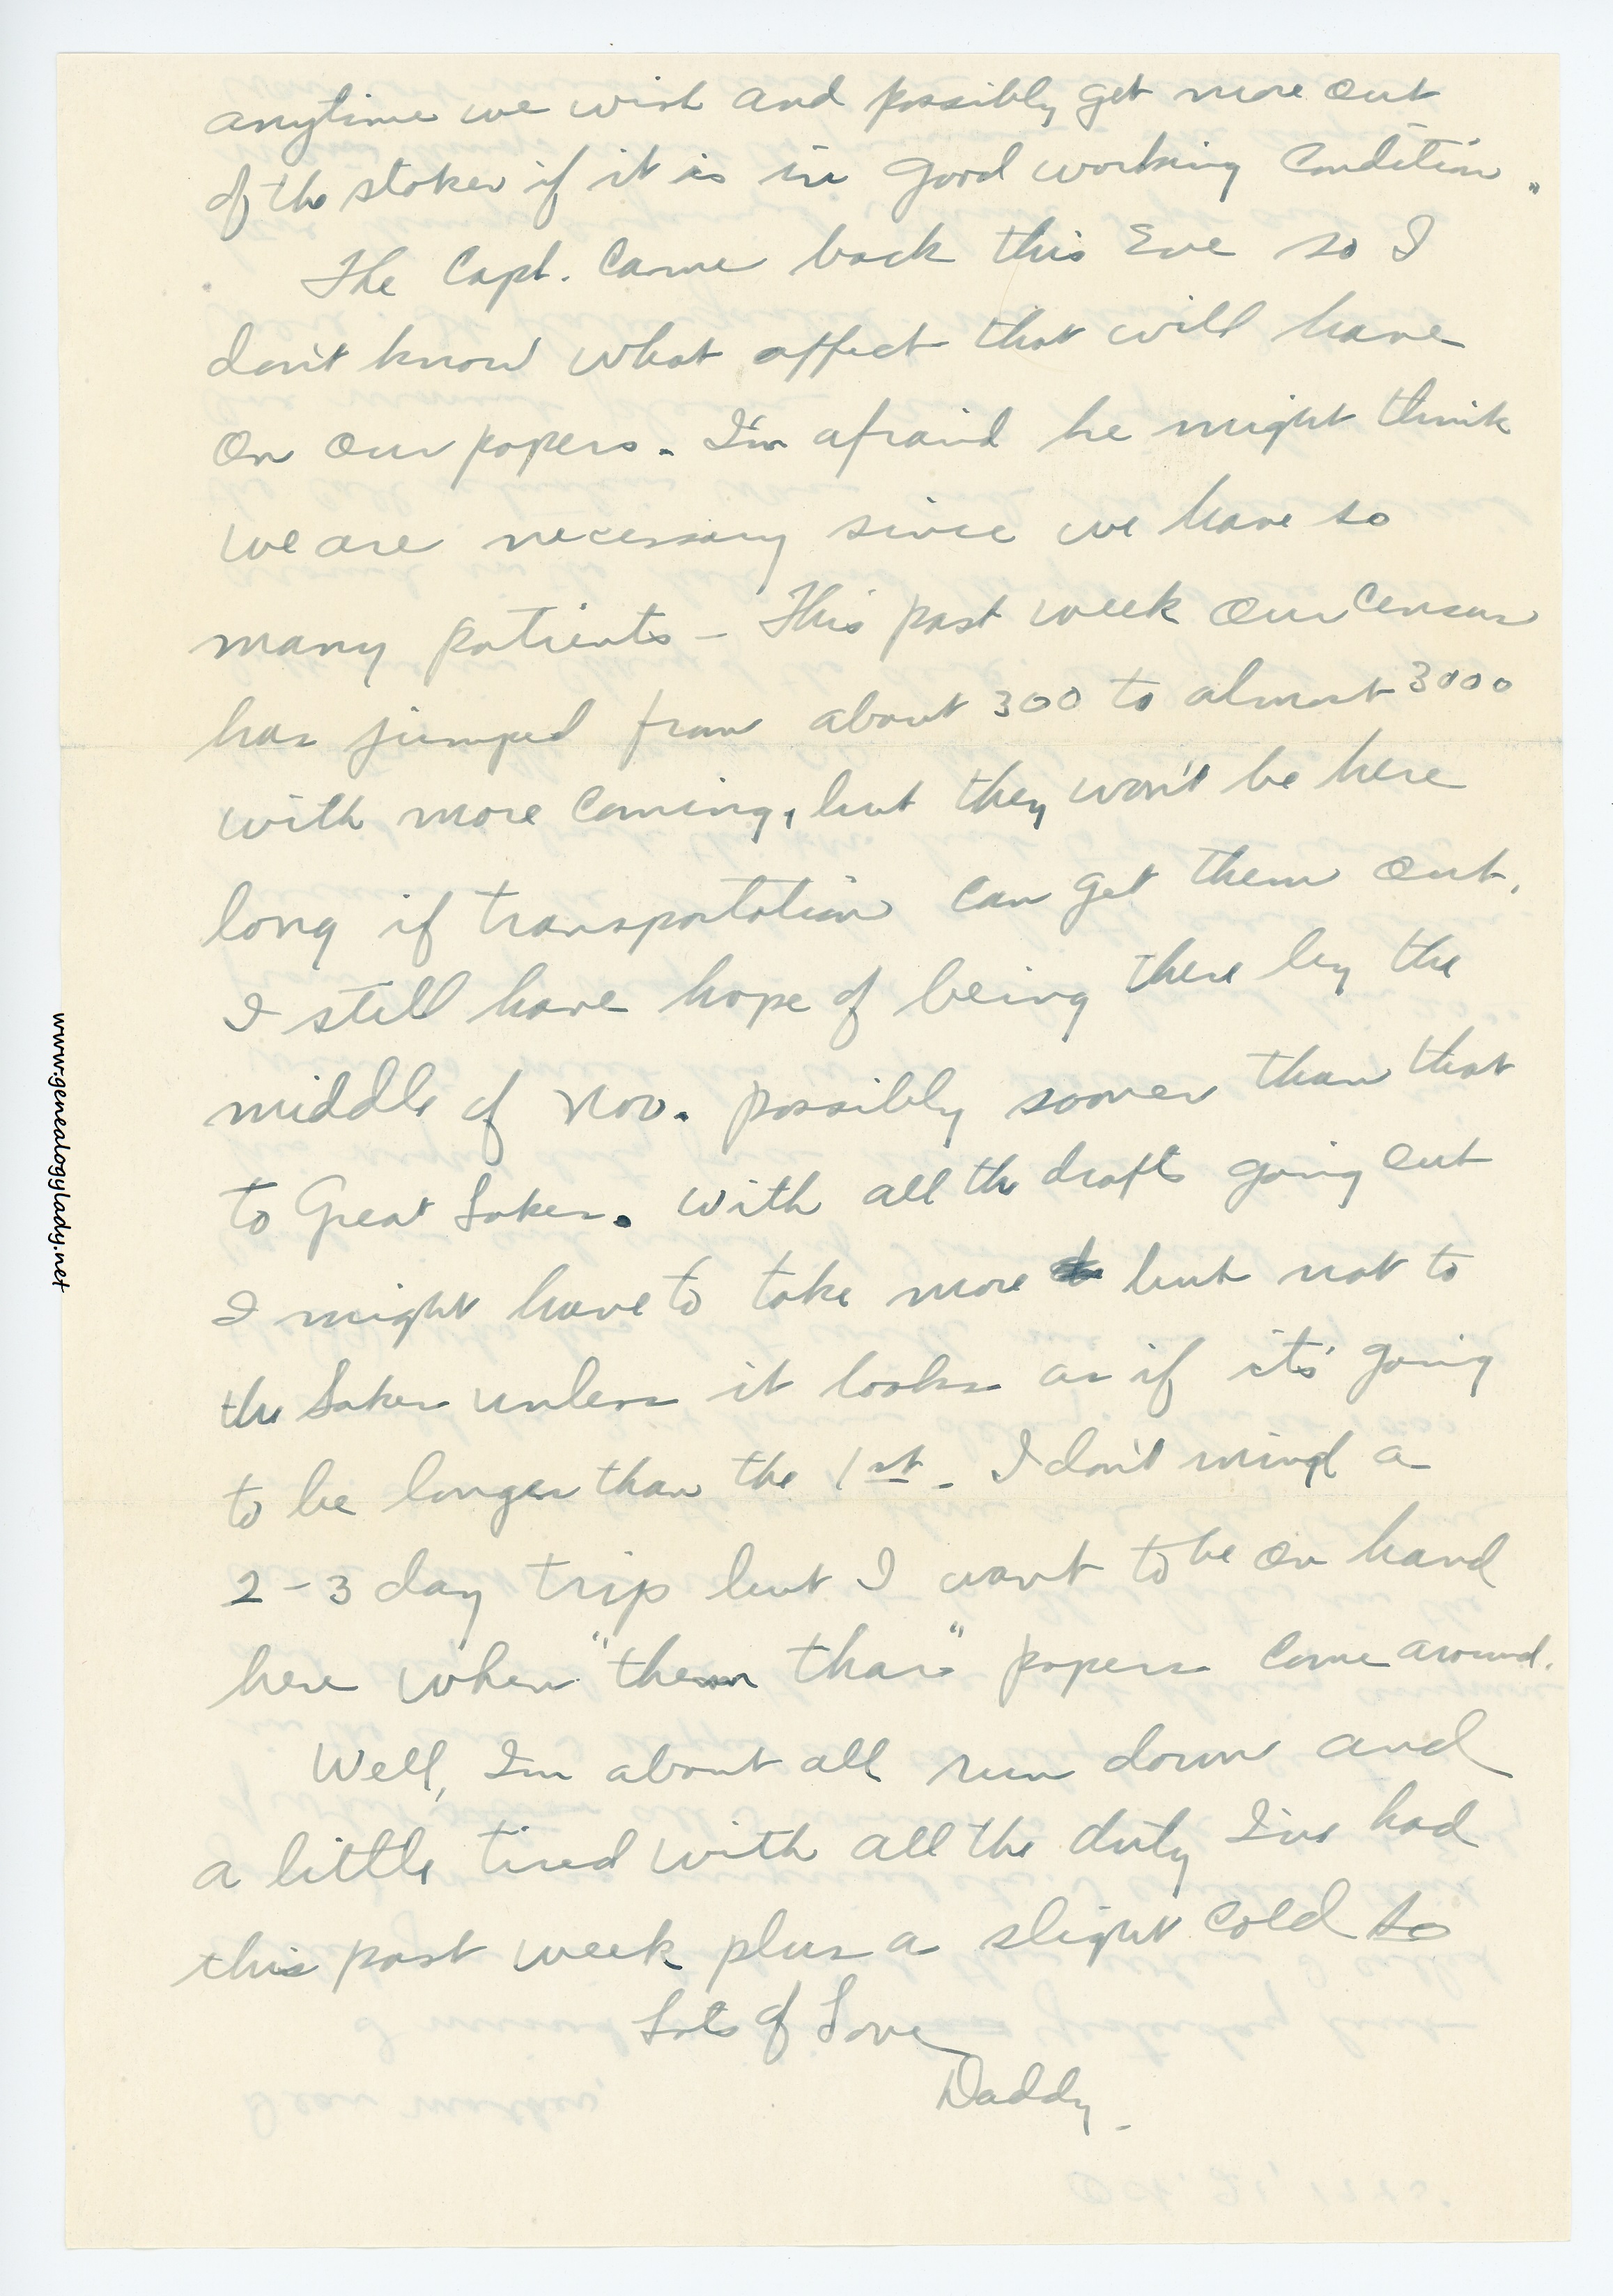 anytime we wish and possibly get more out
of the stoker if it is in good working condition.
The Capt. came back this Eve so I
don't know what affect that will have
on our papers. I'm afraid he might think
we are necessary since we have so
many patients – This past week our census
has jumped from about 300 to almost 3000
with more coming, but they won't be here
long if transportation can get them out.
I still have hope of being there by the
middle of Nov. possibly sooner than that
to Great Lakes. With all the drafts going out
I might have to take more but not to
the Lakes unless it looks as if it's going
to be longer than the 1st. I don't mind a
2-3 day trip but I want to be on hand
here when "them thar" papers come around.
Well, I'm about all run down and
a little tired with all the duty I've had
this past week plus a slight cold so
Lots of Love
Daddy.
www.genealogylady.net